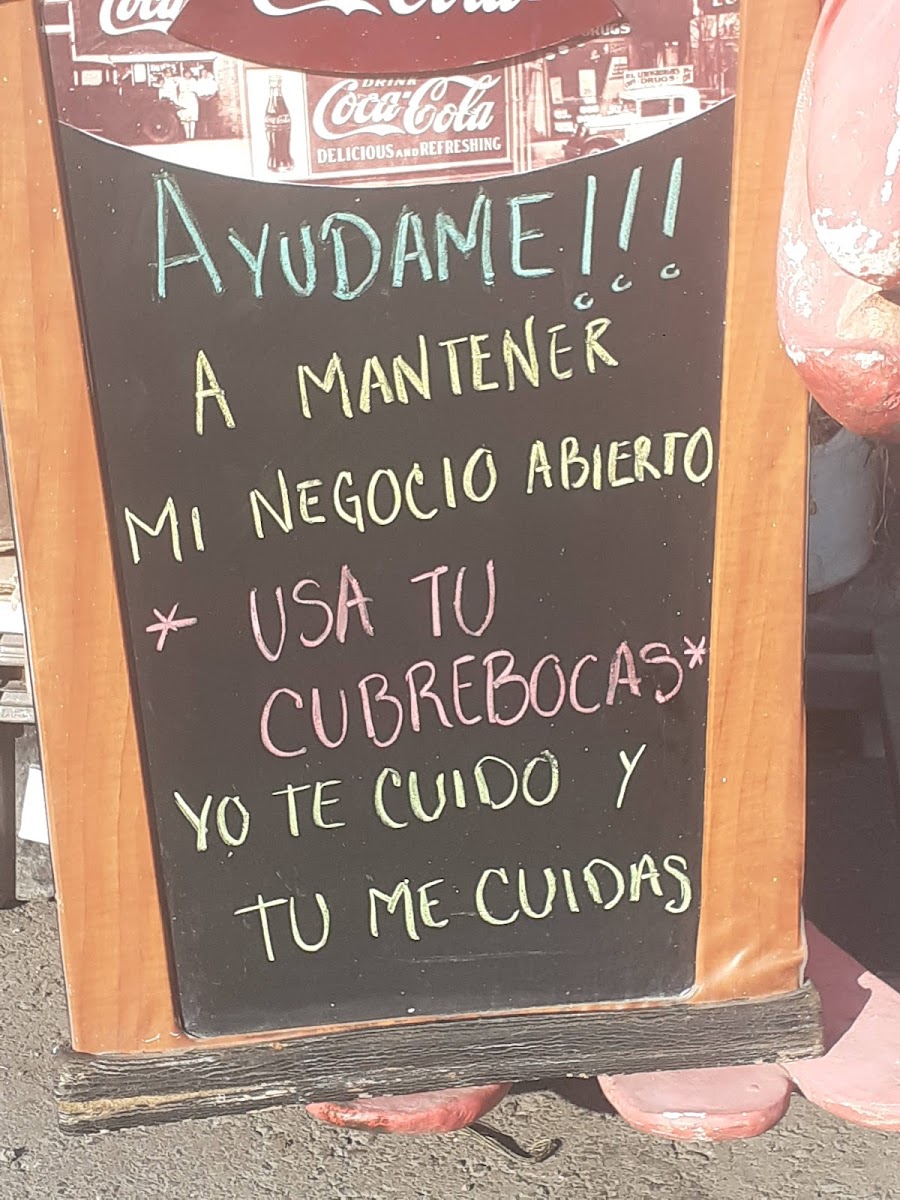 Coca-Cola
DRUGS
DRINK
Coca-Cola
DELICIOUS AND REFRESHING
AYUDAME!!!
A MANTENER
MI NEGOCIO ABIERTO
* USA TU
CUBREBOCAS*
YO TE CUIDO Y
TU ME CUIDAS